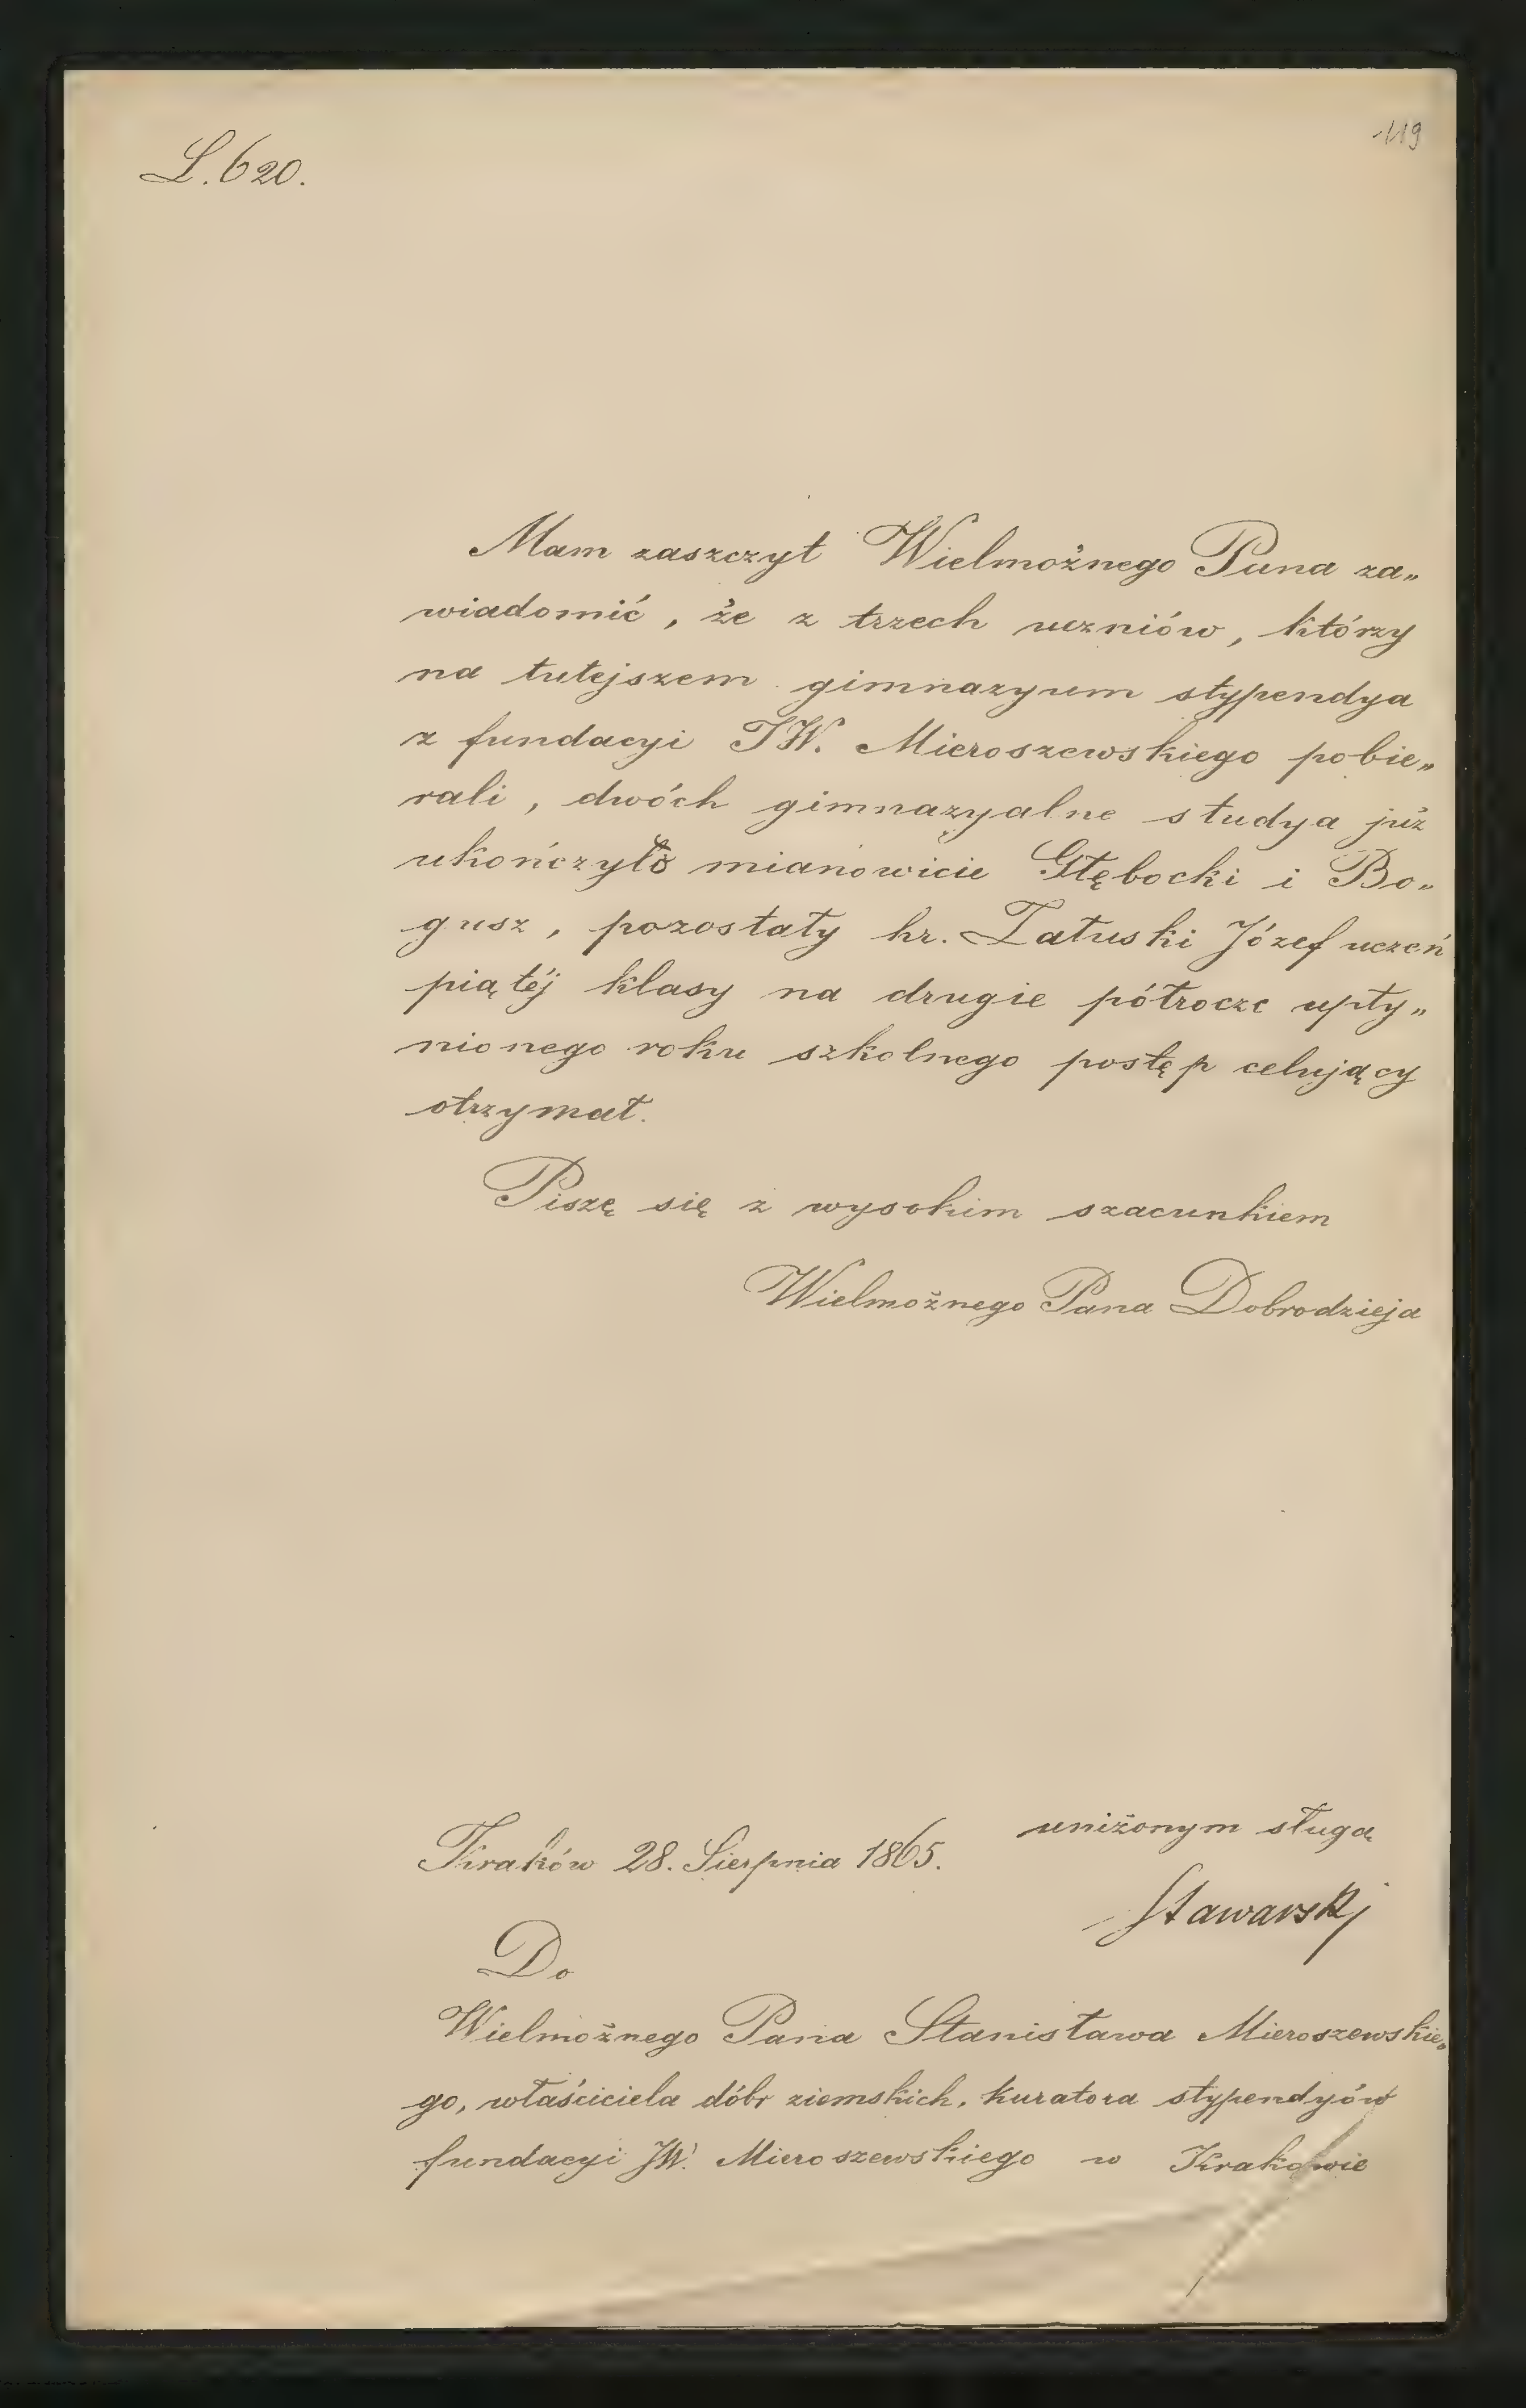 L. 620.
119
Mam zaszczyt Wielmożnego Pana za„
wiadomić, że z trzech uczniów, którzy
na tutejszem gimnazyum stypendya
z fundacyi JW. Mieroszewskiego pobie„
rali, dwóch gimnazyalne studya już
ukończyło mianowicie Głębocki i Bo„
gusz, pozostały hr. Załuski Józef uczeń
piątéj klasy na drugie półrocze upły„
nionego roku szkolnego postęp celujący
otrzymał.
Piszę się z wysokim szacunkiem
Wielmożnego Pana Dobrodzieja
uniżonym sługą
Kraków 28. Sierpnia 1865.
Stawarski
Do
Wielmożnego Pana Stanisława Mieroszewskie„
go, właściciela dóbr ziemskich, kuratora stypendyów
fundacyi JW. Mieroszewskiego w Krakowie